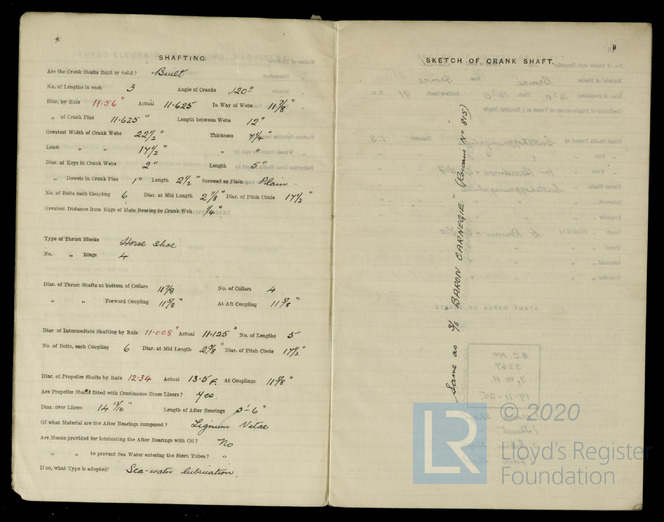 8
SHAFTING.
Are the Crank Shafts Built or Solid? Built
No. of Lengths in each 3 Angle of Cranks 120°
Diar. by Rule 11·56" Actual 11·625 In Way of Webs 11 7/8"
„ of Crank Pins 11·625" Length between Webs 12"
Greatest Width of Crank Webs 22 1/2" Thickness 7 1/4"
Least „ „ 17 1/2" „ "
Diar. of Keys in Crank Webs 2" Length 5"
„ Dowels in Crank Pins 1" Length 2 1/2" Screwed or Plain Plain
No. of Bolts each Coupling 6 Diar. at Mid Length 2 7/8" Diar. of Pitch Circle 17 1/2"
Greatest Distance from Edge of Main Bearing to Crank Web 1/4"
Type of Thrust Blocks Horse Shoe
No. „ Rings 4
Diar. of Thrust Shafts at bottom of Collars 11 7/8 No. of Collars 4
„ „ Forward Coupling 11 5/8" At Aft Coupling 11 5/8"
Diar. of Intermediate Shafting by Rule 11·008" Actual 11·125" No. of Lengths 5
No. of Bolts, each Coupling 6 Diar. at Mid Length 2 7/8" Diar. of Pitch Circle 17 1/2"
Diar. of Propeller Shafts by Rule 12·34 Actual 13·5 At Couplings 11 5/8"
Are Propeller Shafts fitted with Continuous Brass Liners? Yes
Diar. over Liners 14 Length of After Bearings 6"
Of what Material are the After Bearings composed? Lignum Vitae
Are Means provided for lubricating the After Bearings with Oil? No
„ „ to prevent Sea Water entering the Stern Tubes? "
If so, what Type is adopted? Sea-water lubrication.
9
SKETCH OF CRANK SHAFT.
Same as S/S "BARON CARNEGIE" No 815)
© 2020
LR
Lloyd's Register
Foundation